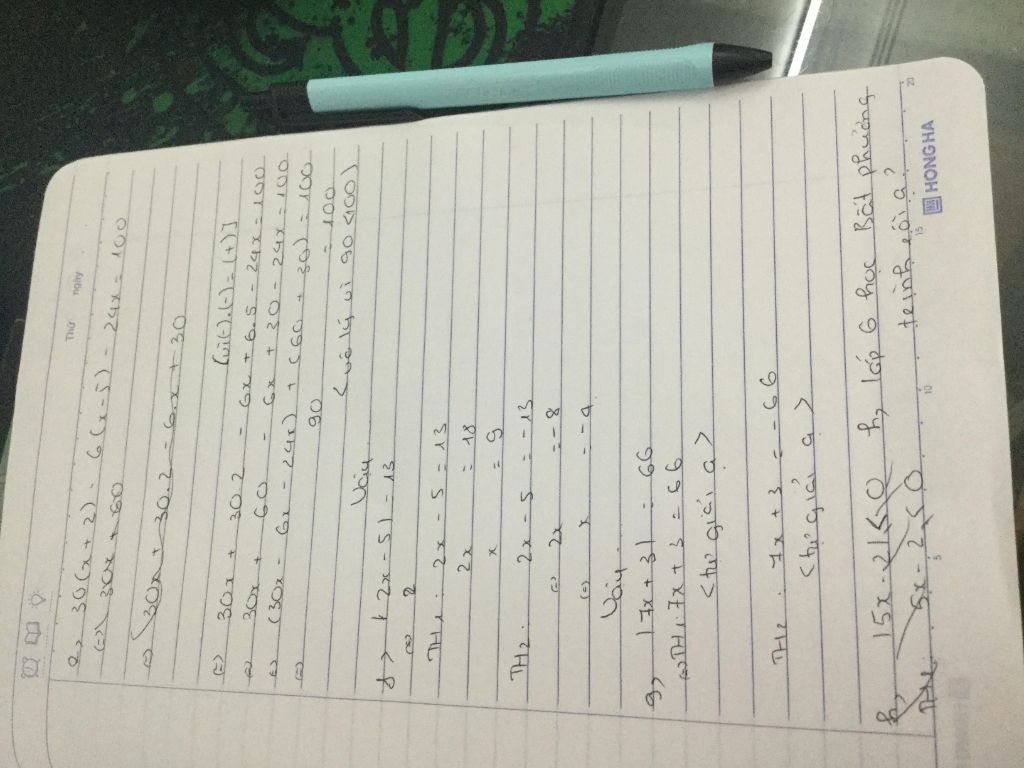 Thứ
ngày
e, 30(x+2) - 6(x-5) - 24x = 100
(=) 30x + 60
(=) (30x + 30.2 - 6x + 30
(vì (-).(-) = (+)]
(=) 30x + 30.2 - 6x + 6.5 - 24x = 100
(=) 30x + 60 - 6x + 30 - 24x = 100
(=) (30x - 6x - 24x) + (60 + 30) = 100
(=) 90 = 100
<vô lý vì 90 < 100>
Vậy
f, |2x - 5| = 13
(=)
TH1: 2x - 5 = 13
2x = 18
x = 9
TH2: 2x - 5 = -13
(=) 2x = -8
(=) x = -4
Vậy...
g, |7x + 3| = 66
(=) TH1: 7x + 3 = 66
<tự giải ạ>
TH2: 7x + 3 = -66
<tự giải ạ>
h, |5x - 2| ≤ 0 h, lớp 6 học Bất phương
TH1: 5x - 2 ≤ 0 trình rồi ạ?
5 10 15 20
HONG HA